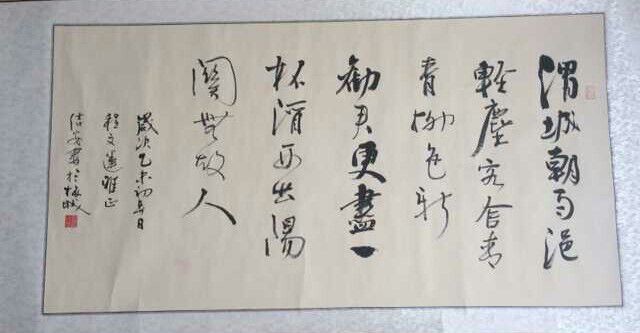 渭城朝雨浥
輕塵客舍青
青柳色新
勸君更盡一
杯酒西出陽
關無故人
歲次乙未初日
程文雅正
書於